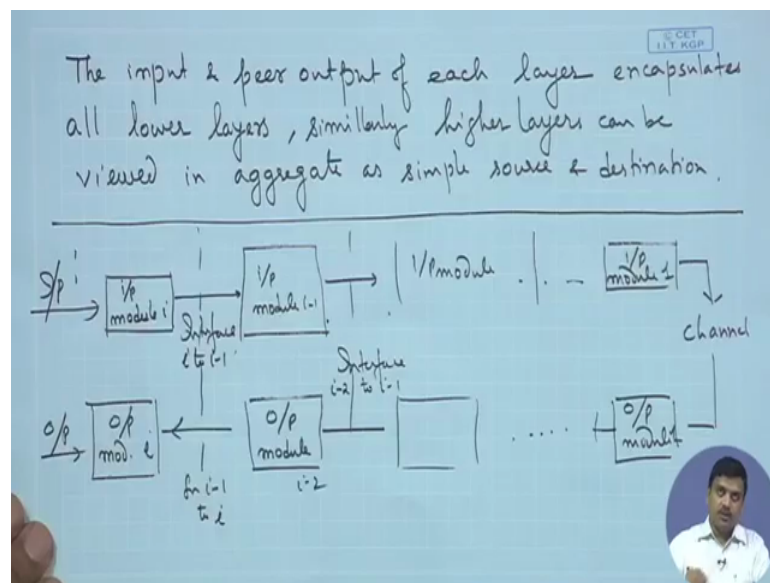 © CET
I.I.T. KGP
The input & peer output of each layer encapsulates
all lower layers, similarly higher layers can be
viewed in aggregate as simple source & destination.
I/p i
i/p
module i
Interface
i to i-1
i/p
module i-1
I/P module
I/P
module 1
channel
O/p
O/p
mod. i
for i-1
to i
O/p
module
i-2
Interface
i-2 to i-1
O/p
module 1